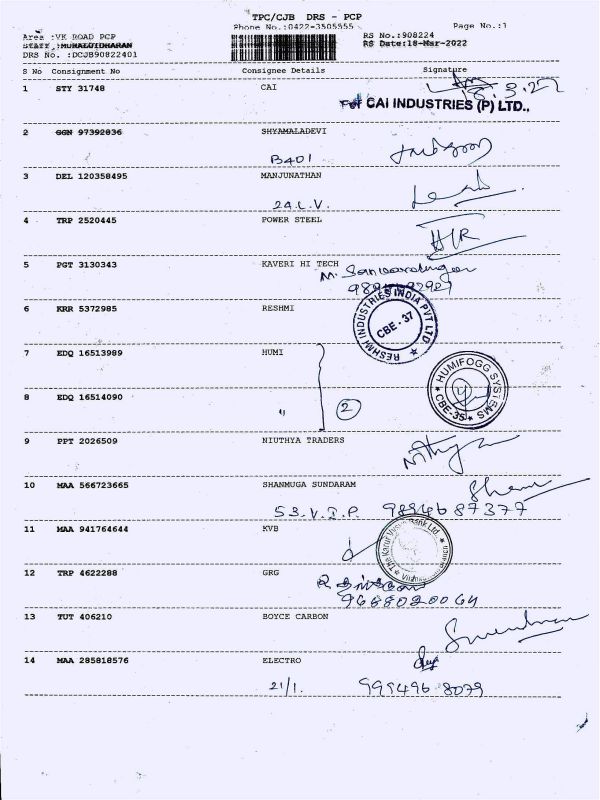 TPC/CJB DRS - PCP
Phone No.:0422-3505555 Page No.:1
Area :VK ROAD PCP
RS No.:908224
STAFF :MURALOTDHARAN
RS Date:18-Mar-2022
DRS No. :DCJB90822401
S No Consignment No Consignee Details Signature
1 STY 31748 CAI
18.3.22
For CAI INDUSTRIES (P) LTD.,
2 GGN 97392836 SHYAMALADEVI
B401
3 DEL 120358495 MANJUNATHAN
24.L.V.
4 TRP 2520445 POWER STEEL
5 PGT 3130343 KAVERI HI TECH
6 KRR 5372985 RESHMI
RESHMI INDUSTRIES INDIA PVT LTD
CBE - 37
7 EDQ 16513989 HUMI
HUMIFOGG SYSTEMS
CBE-35
8 EDQ 16514090 "
2
9 PPT 2026509 NIUTHYA TRADERS
Nithya
10 MAA 566723665 SHANMUGA SUNDARAM
53.V.I.P. 9894687377
11 MAA 941764644 KVB
The Karur Vysya Bank Ltd.
12 TRP 4622288 GRG
9688020064
13 TUT 406210 BOYCE CARBON
14 MAA 285818576 ELECTRO
21/1. 999496 8079